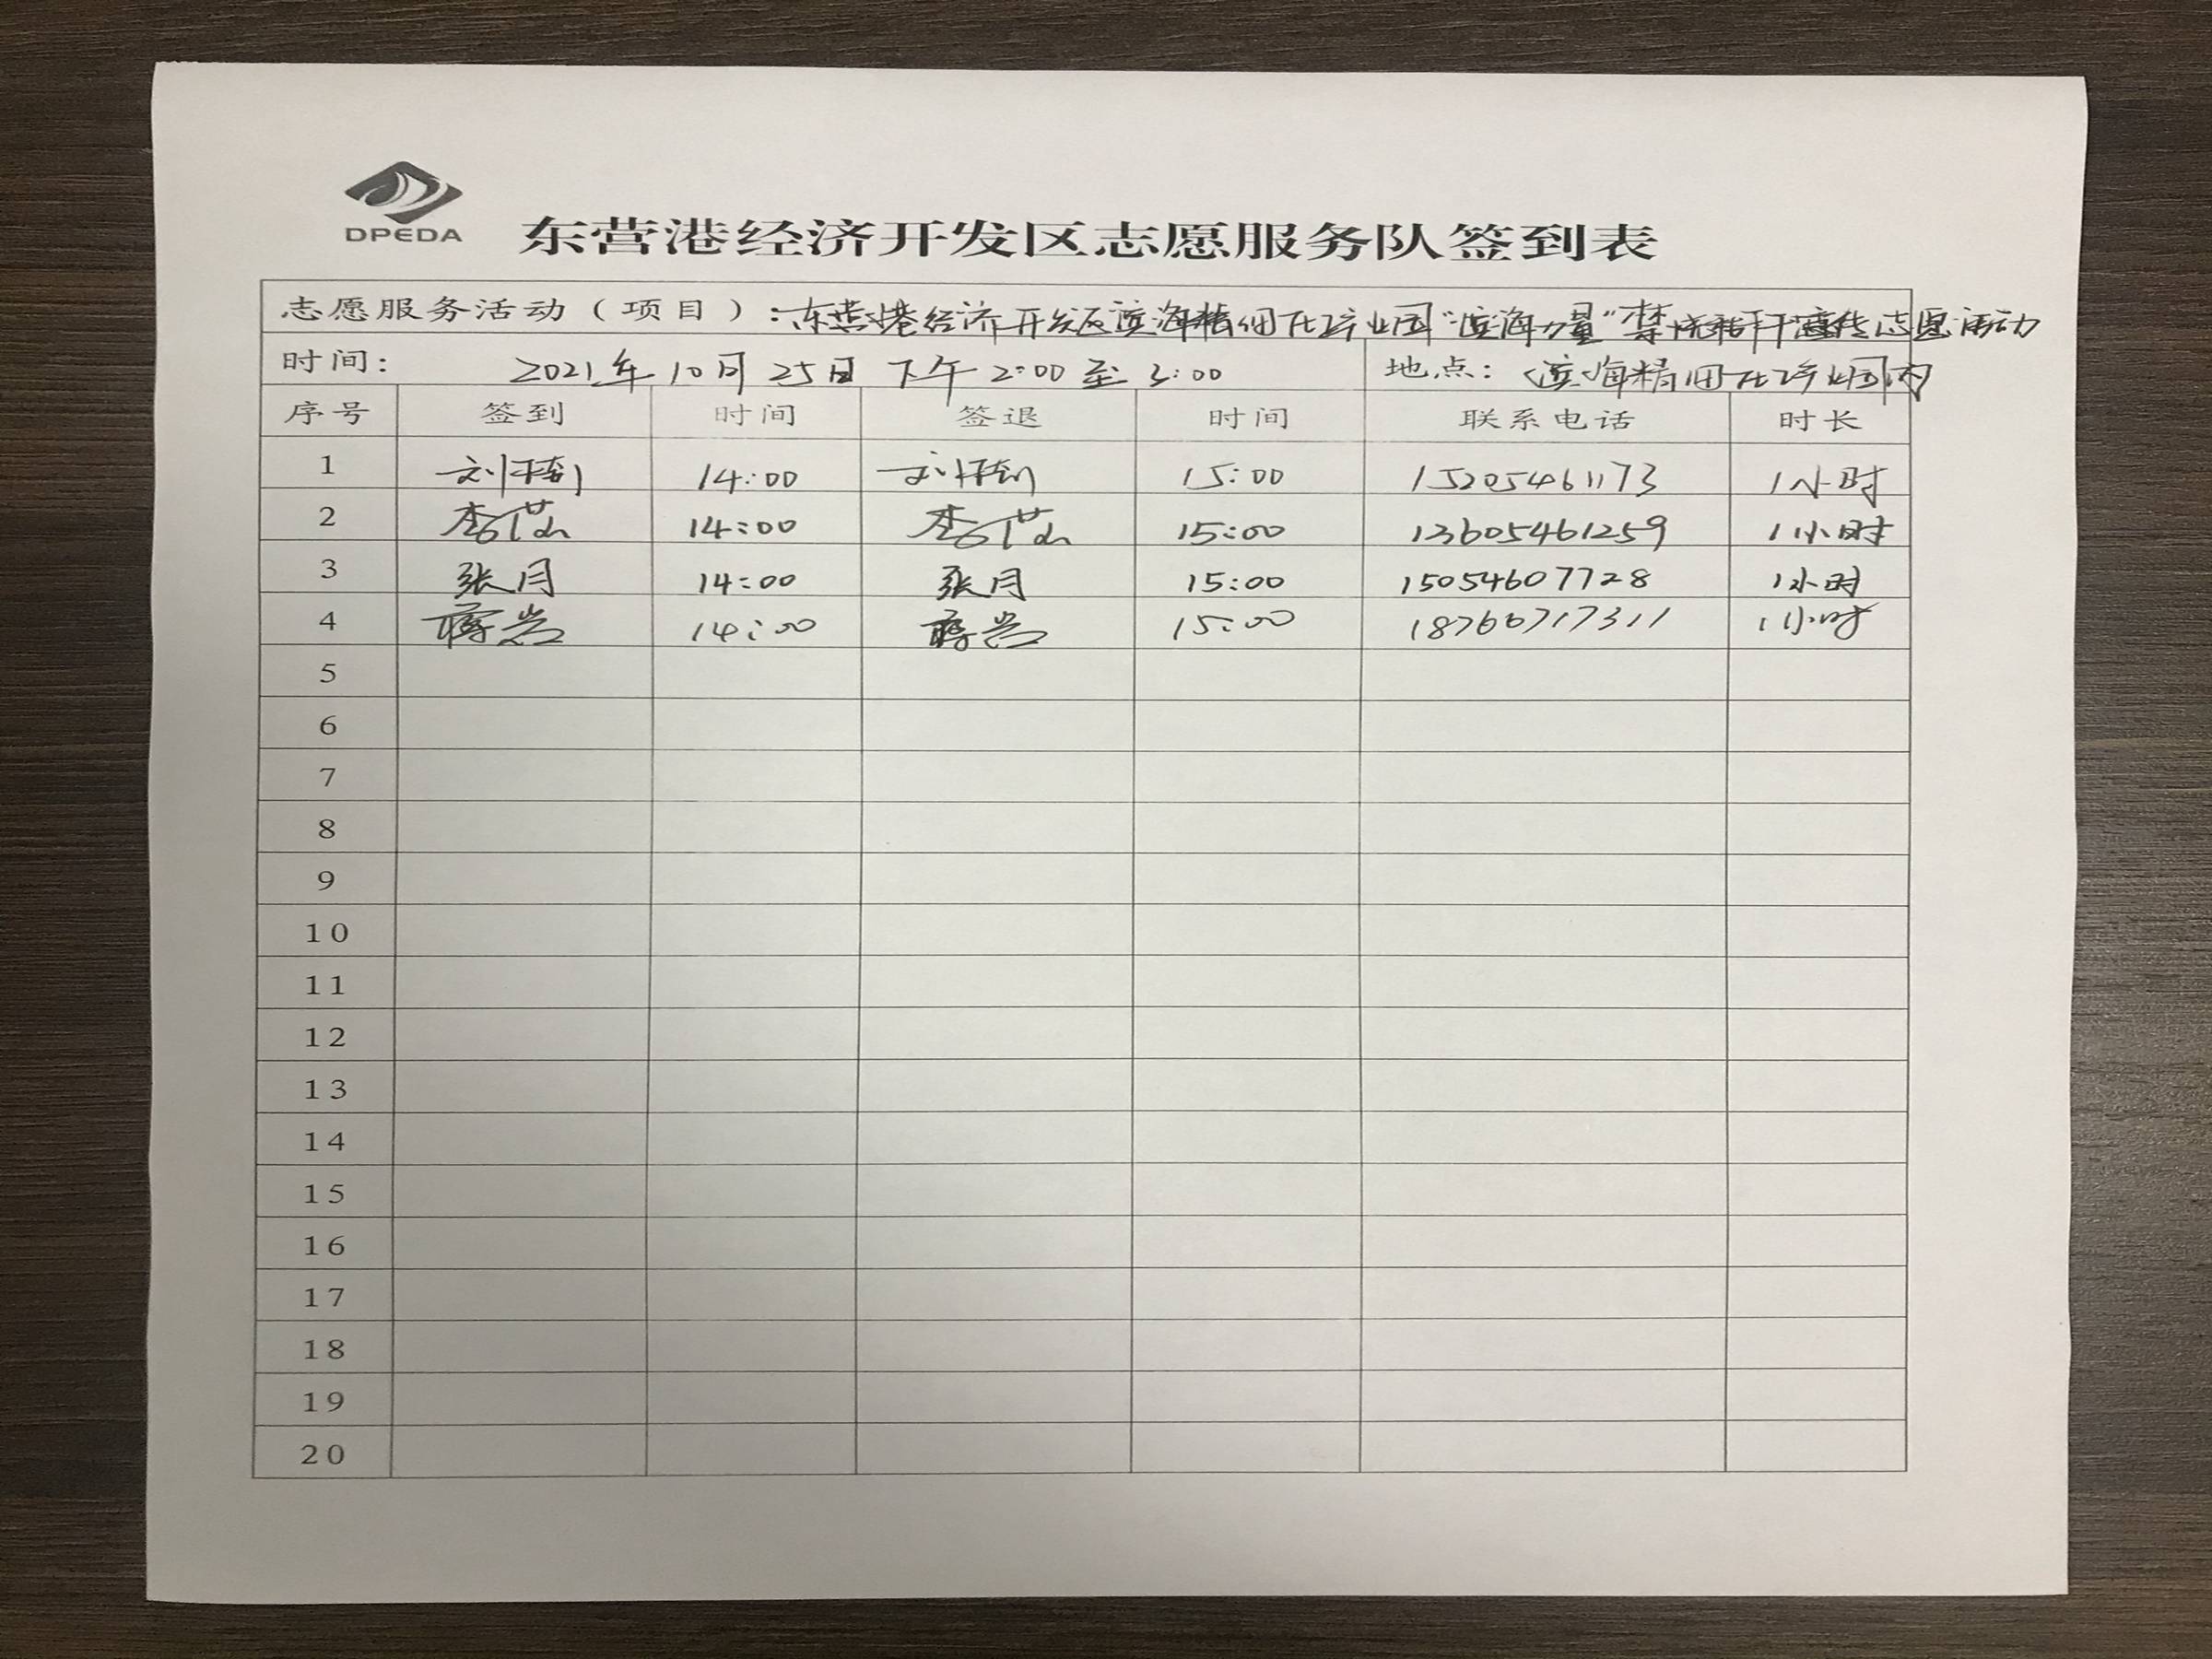 DPEDA
东营港经济开发区志愿服务队签到表
志愿服务活动（项目）：东营港经济开发区滨海精细化工产业园“滨海力量”禁烧秸秆宣传志愿活动
时间： 2021年10月25日 下午2:00至3:00 地点： 滨海精细化工产业园内
序号 签到 时间 签退 时间 联系电话 时长
1 刘 14:00 刘 15:00 15205461173 1小时
2 李 14:00 李 15:00 13605461259 1小时
3 张月 14:00 张月 15:00 15054607728 1小时
4 蒋岩 14:00 蒋岩 15:00 18766717311 1小时
5
6
7
8
9
10
11
12
13
14
15
16
17
18
19
20